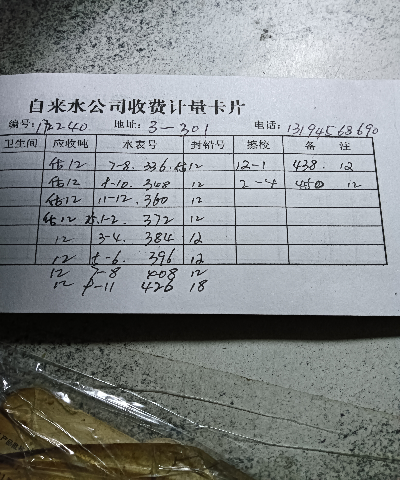 自来水公司收费计量卡片
编号:17240 地址:3-301 电话:13194568690
卫生间 应收吨 水表号 封铅号 擦校 备注
估12 7-8. 336. 估12 12-1 438. 12
估12 8-10. 348 12 2-4 450 12
估12 11-12. 360 12
估12 1-2. 372 12
12 3-4. 384 12
12 5-6. 396 12
12 7-8 408 12
12 9-11 426 18